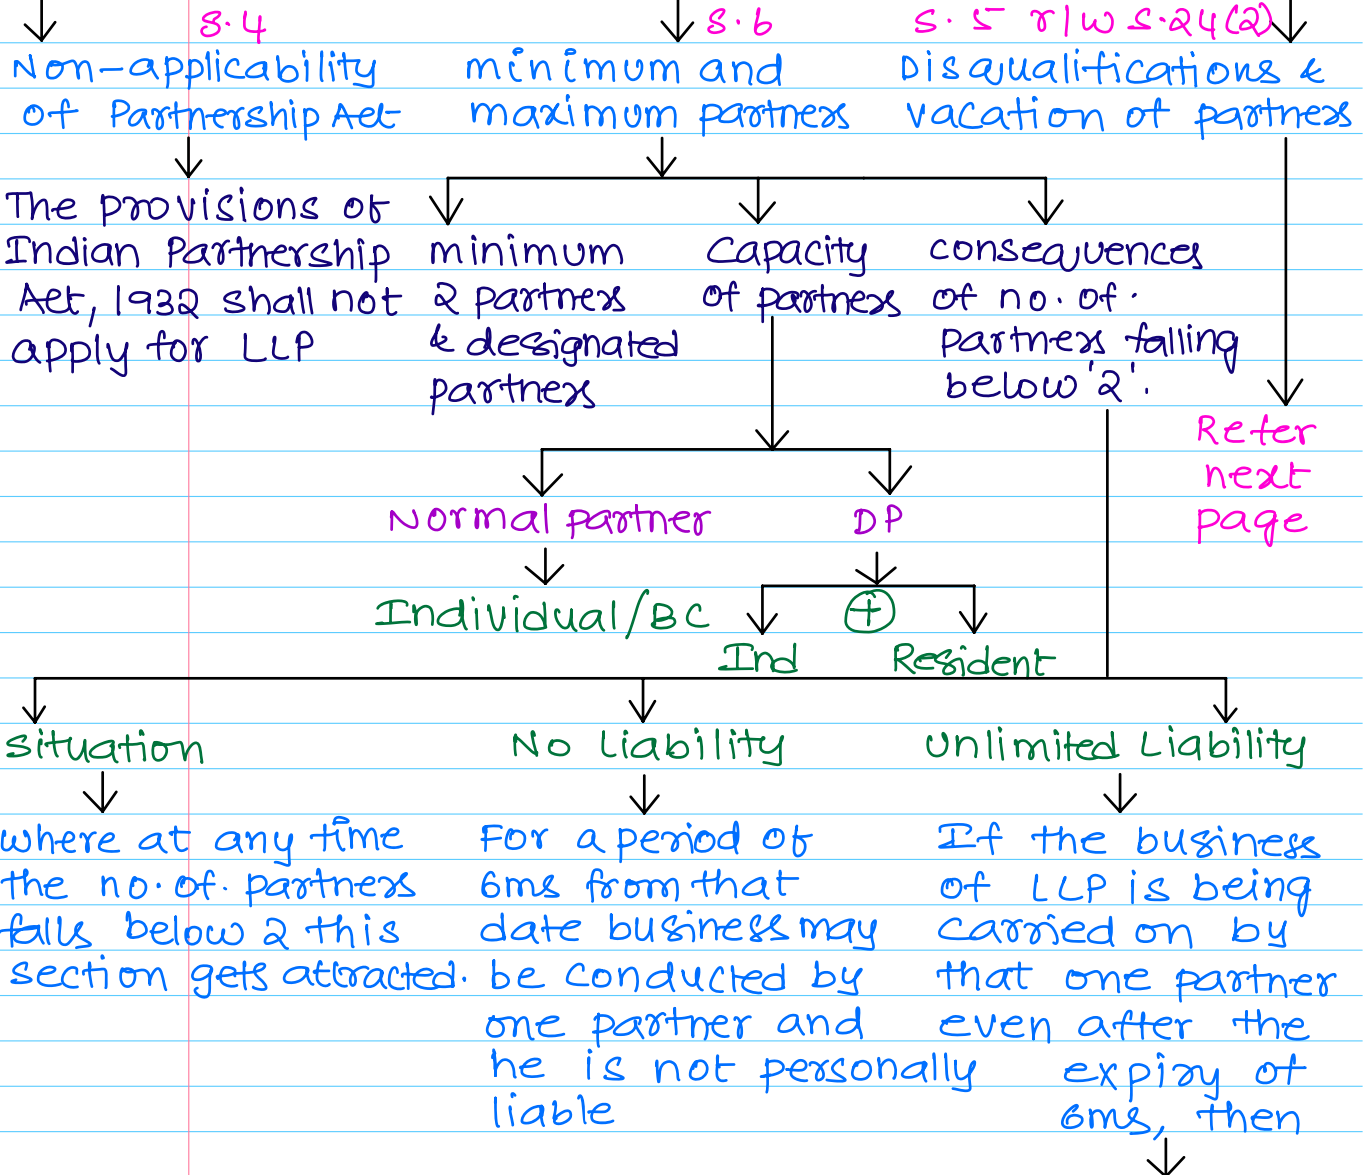 S.4
Non-applicability
of Partnership Act
The provisions of
Indian Partnership
Act, 1932 shall not
apply for LLP
S.6
minimum and
maximum partners
minimum
2 partners
& designated
partners
Capacity
of partners
Normal partner
Individual/BC
DP
+
Ind
Resident
consequences
of no. of.
partners falling
below '2'.
S.5 r/w S.24(2)
Disqualifications &
vacation of partners
Refer
next
page
Situation
where at any time
the no. of. partners
falls below 2 this
section gets attracted.
No Liability
For a period of
6ms from that
date business may
be conducted by
one partner and
he is not personally
liable
Unlimited Liability
If the business
of LLP is being
carried on by
that one partner
even after the
expiry of
6ms, then